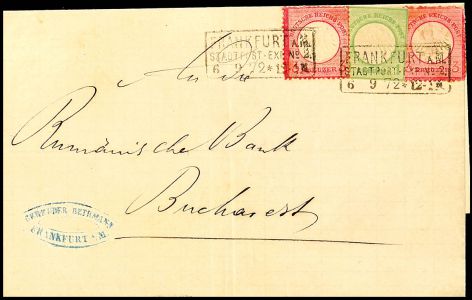 FRANKFURT A.M.
STADTPOST-EXP. No. 2.
6 9 72 * 12-1 N
DEUTSCHE REICHS-POST
KREUZER
FRANKFURT A.M.
6 9 72 * 12-1 N
An die
Rumänische Bank
Bucharest
GEBRÜDER BETHMANN
FRANKFURT A/M